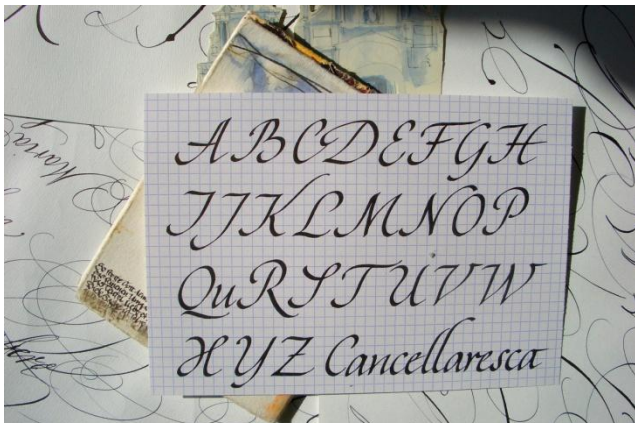 Maria
ABCDEFGH
IJKLMNOP
QuRSTUVW
XYZ Cancellaresca